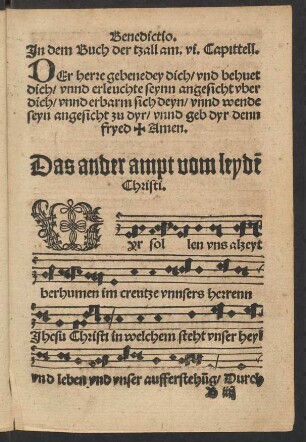 Benedictio.
In dem Buch der tzall am. vi. Capittell.
DEr herre gebenedey dich/ vnd behuet
dich/ vnnd erleuchte seynn angesicht vber
dich/ vnnd erbarm sich deyn/ vnnd wende
seyn angesicht zu dyr/ vnnd geb dyr denn
fryed ✠ Amen.
Das ander ampt vom leydē
Christi.
WYr sol len vns alzeyt
berhumen im creutze vnnsers herrenn
Jhesu Christi in welchem steht vnser heyl
vnd leben vnd vnser aufferstehūg/ Durch